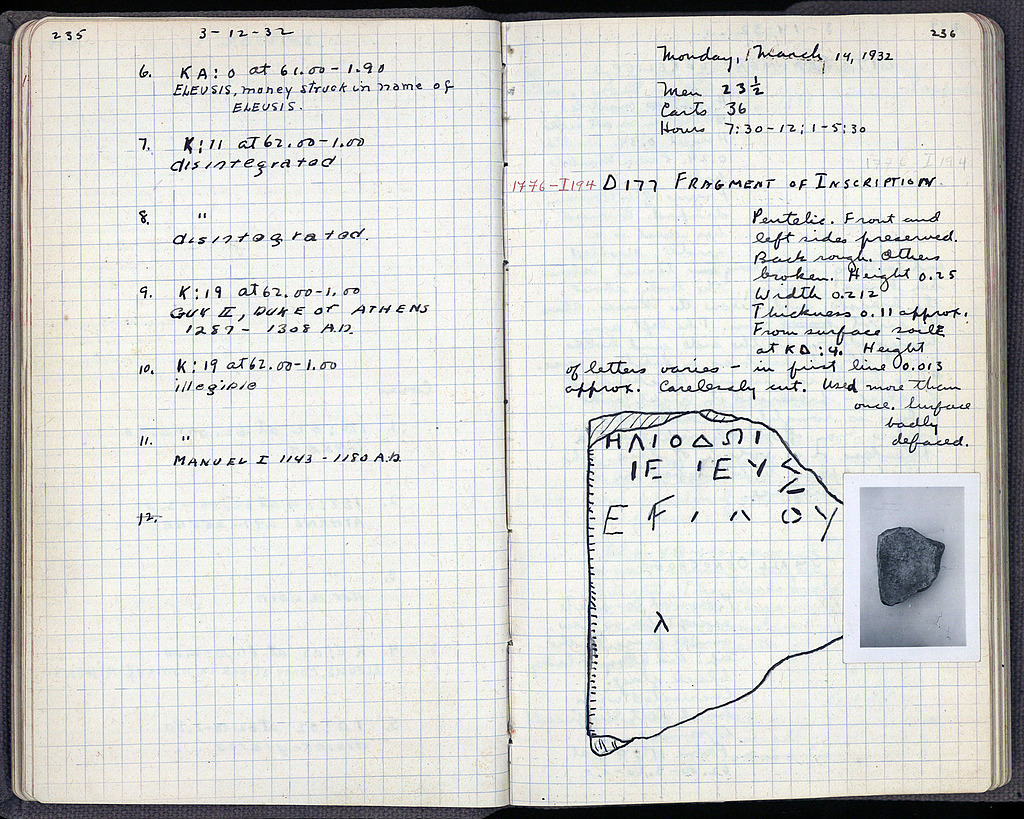 235
3-12-32
6. KA:0 at 61.00-1.90
ELEUSIS, money struck in name of
ELEUSIS.
7. K:11 at 62.00-1.00
disintegrated
8. "
disintegrated.
9. K:19 at 62.00-1.00
GUY II, DUKE OF ATHENS
1287 - 1308 A.D.
10. K:19 at 62.00-1.00
illegible
11. "
MANUEL I 1143 - 1180 A.D.
12.
236
Monday, March 14, 1932
Men 23 1/2
Carts 36
Hours 7:30-12; 1-5:30
1776-I194
1776-I194 D177 FRAGMENT OF INSCRIPTION.
Pentelic. Front and
left sides preserved.
Back rough. Others
broken. Height 0.25
Width 0.212
Thickness 0.11 approx.
From surface soil
at KD:4. Height
of letters varies - in first line 0.013
approx. Carelessly cut. Used more than
once. Surface
badly
defaced.
ΗΛΙΟΔΩΙ
ΙΕ Ι Ε Υ Σ
Ε F Ο Υ
λ